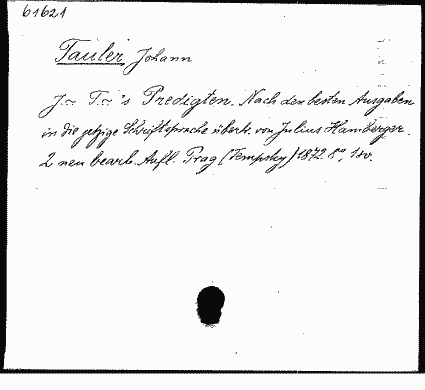 61621
Tauler Johann
J. T.'s Predigten. Nach den besten Ausgaben
in die jetzige Schriftsprache übertr. von Julius Hamberger.
2 neu bearb. Aufl. Prag (Tempsky) 1872 8°,